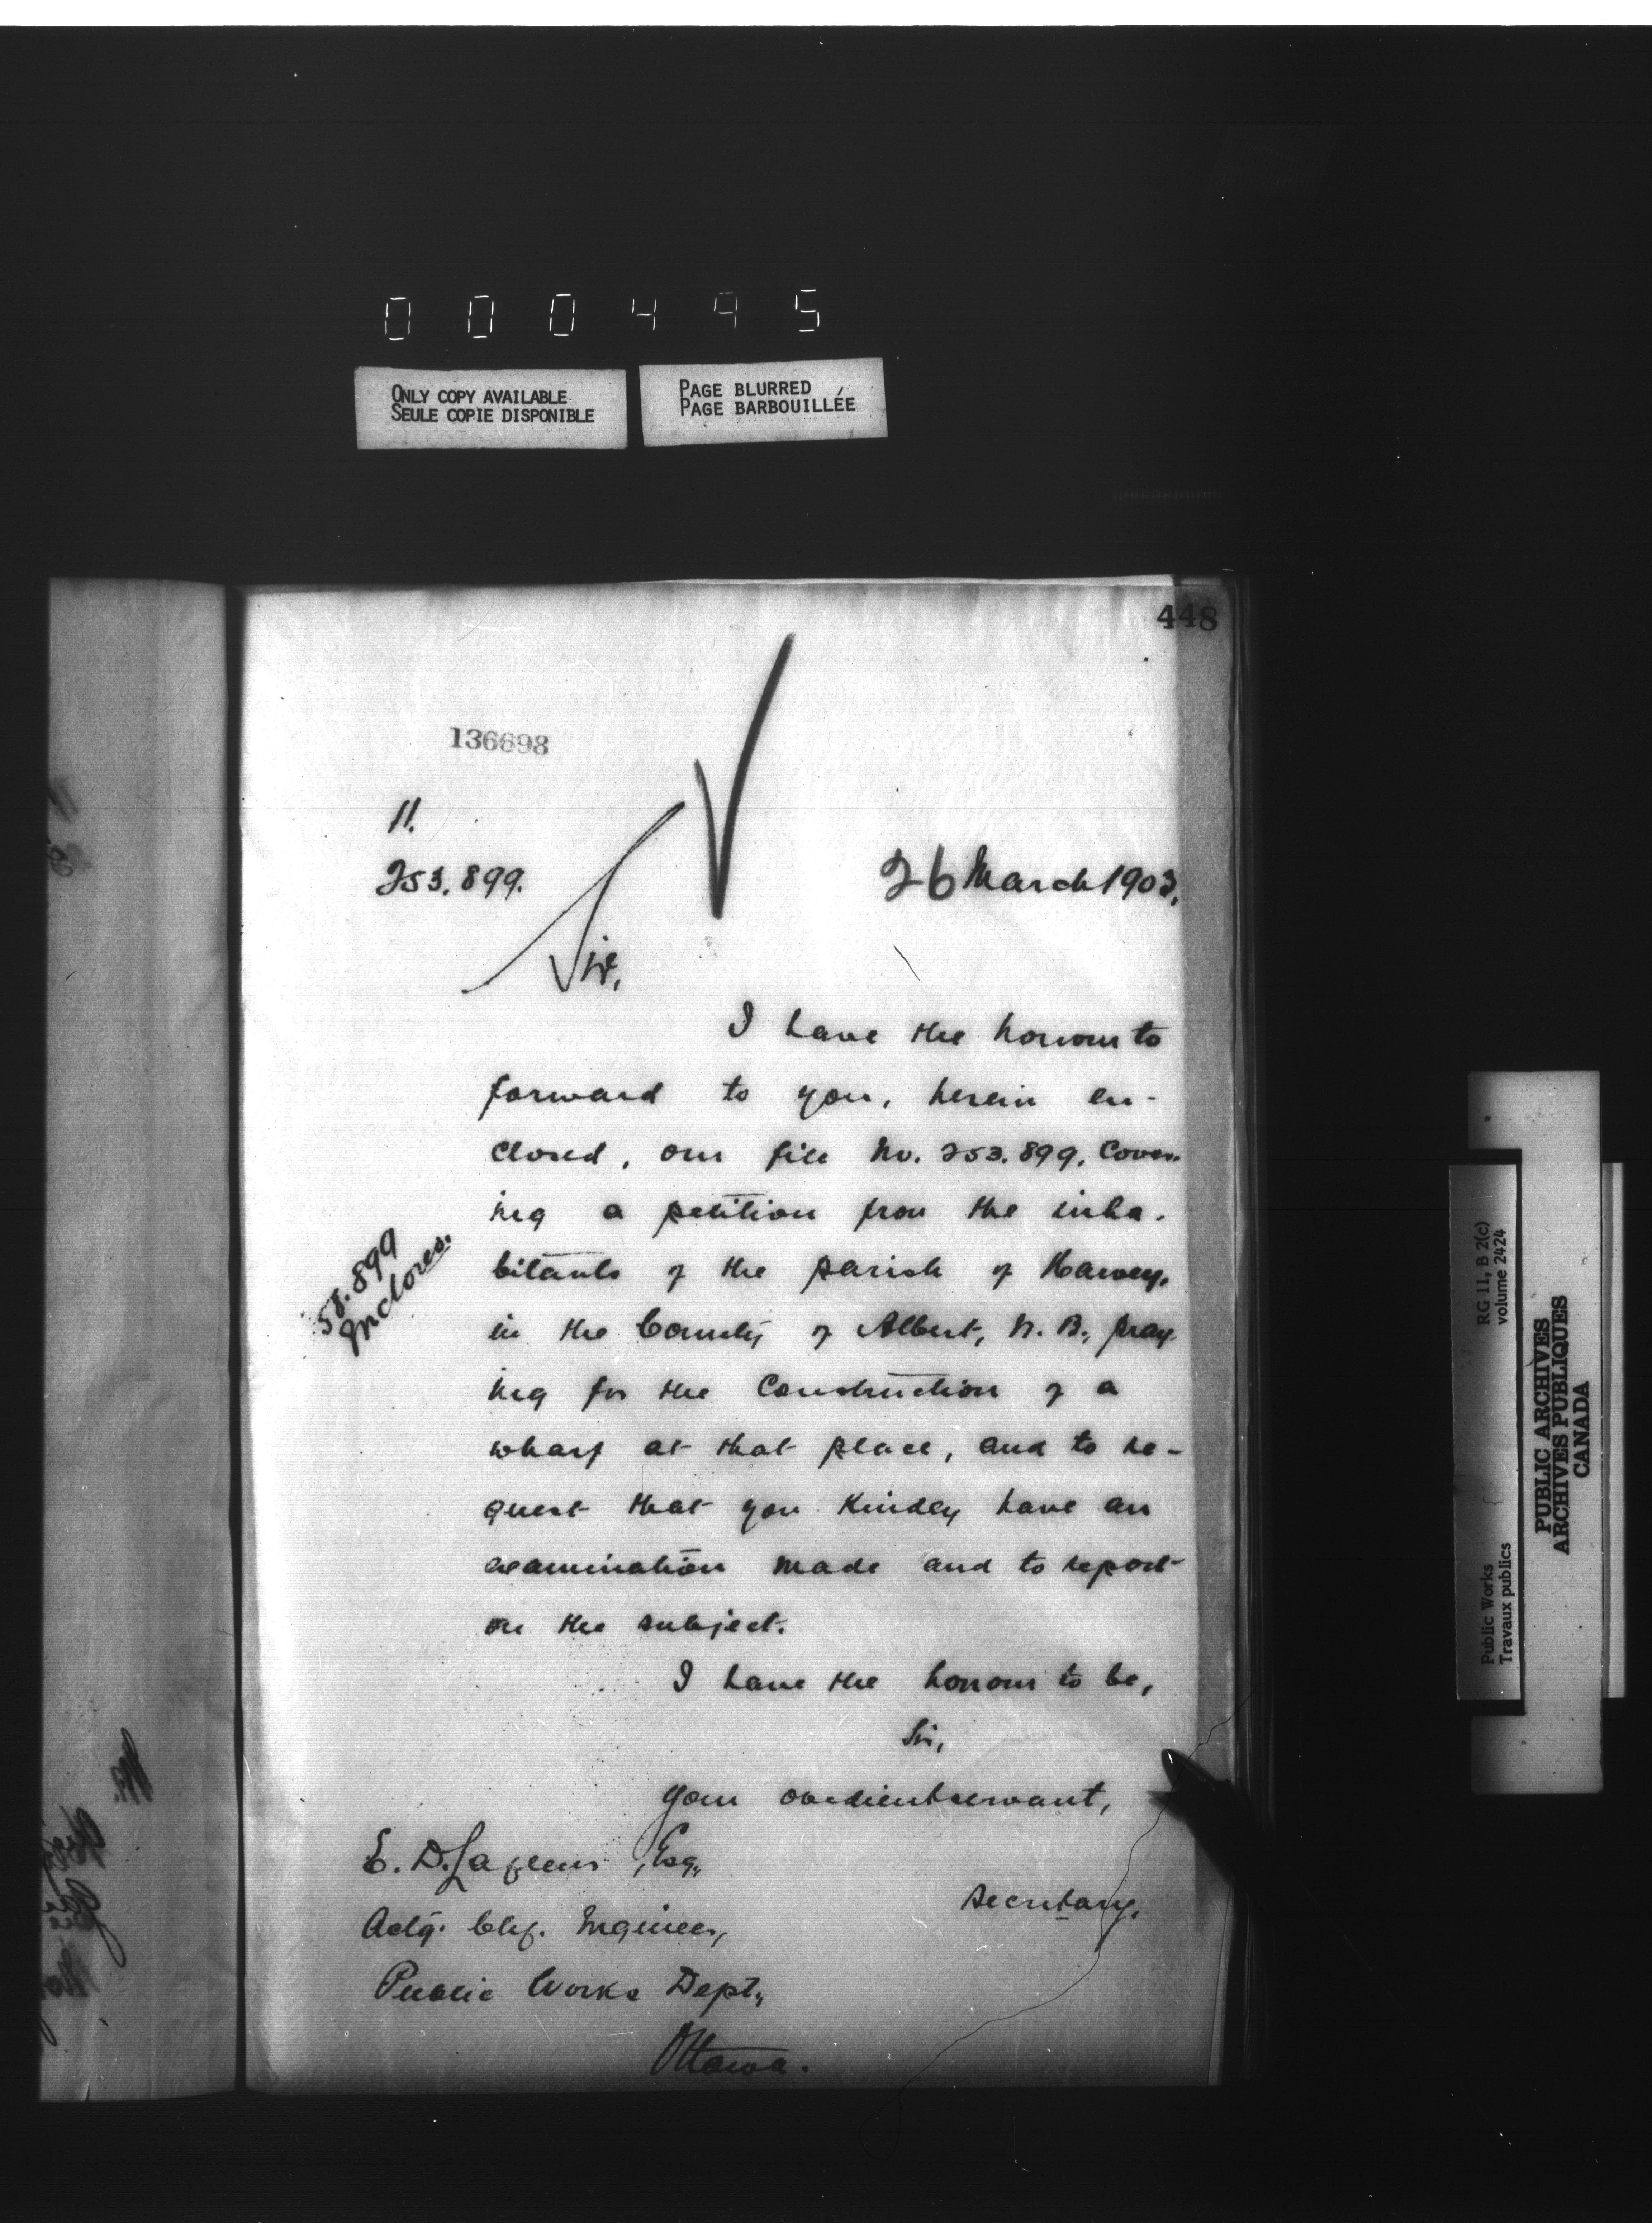 000495
ONLY COPY AVAILABLE
SEULE COPIE DISPONIBLE
PAGE BLURRED
PAGE BARBOUILLÉE
448
136698
11.
253.899.
26 March 1903.
Sir,
I have the honour to
forward to you, herein en-
closed, our file No. 253.899, Cover-
ing a petition from the inha-
bitants of the parish of Harvey,
in the County of Albert, N. B., pray-
ing for the Construction of a
wharf at that place, and to re-
quest that you Kindly have an
examination made and to report
on the subject.
53.899
Inclores.
I have the honour to be,
Sir,
your obedient servant,
Secretary.
E. D. Lafleur, Esq.,
Actg. Chf. Engineer,
Public Works Dept.,
Ottawa.
Public Works
Travaux publics
RG 11, B 2(c)
volume 2424
PUBLIC ARCHIVES
ARCHIVES PUBLIQUES
CANADA